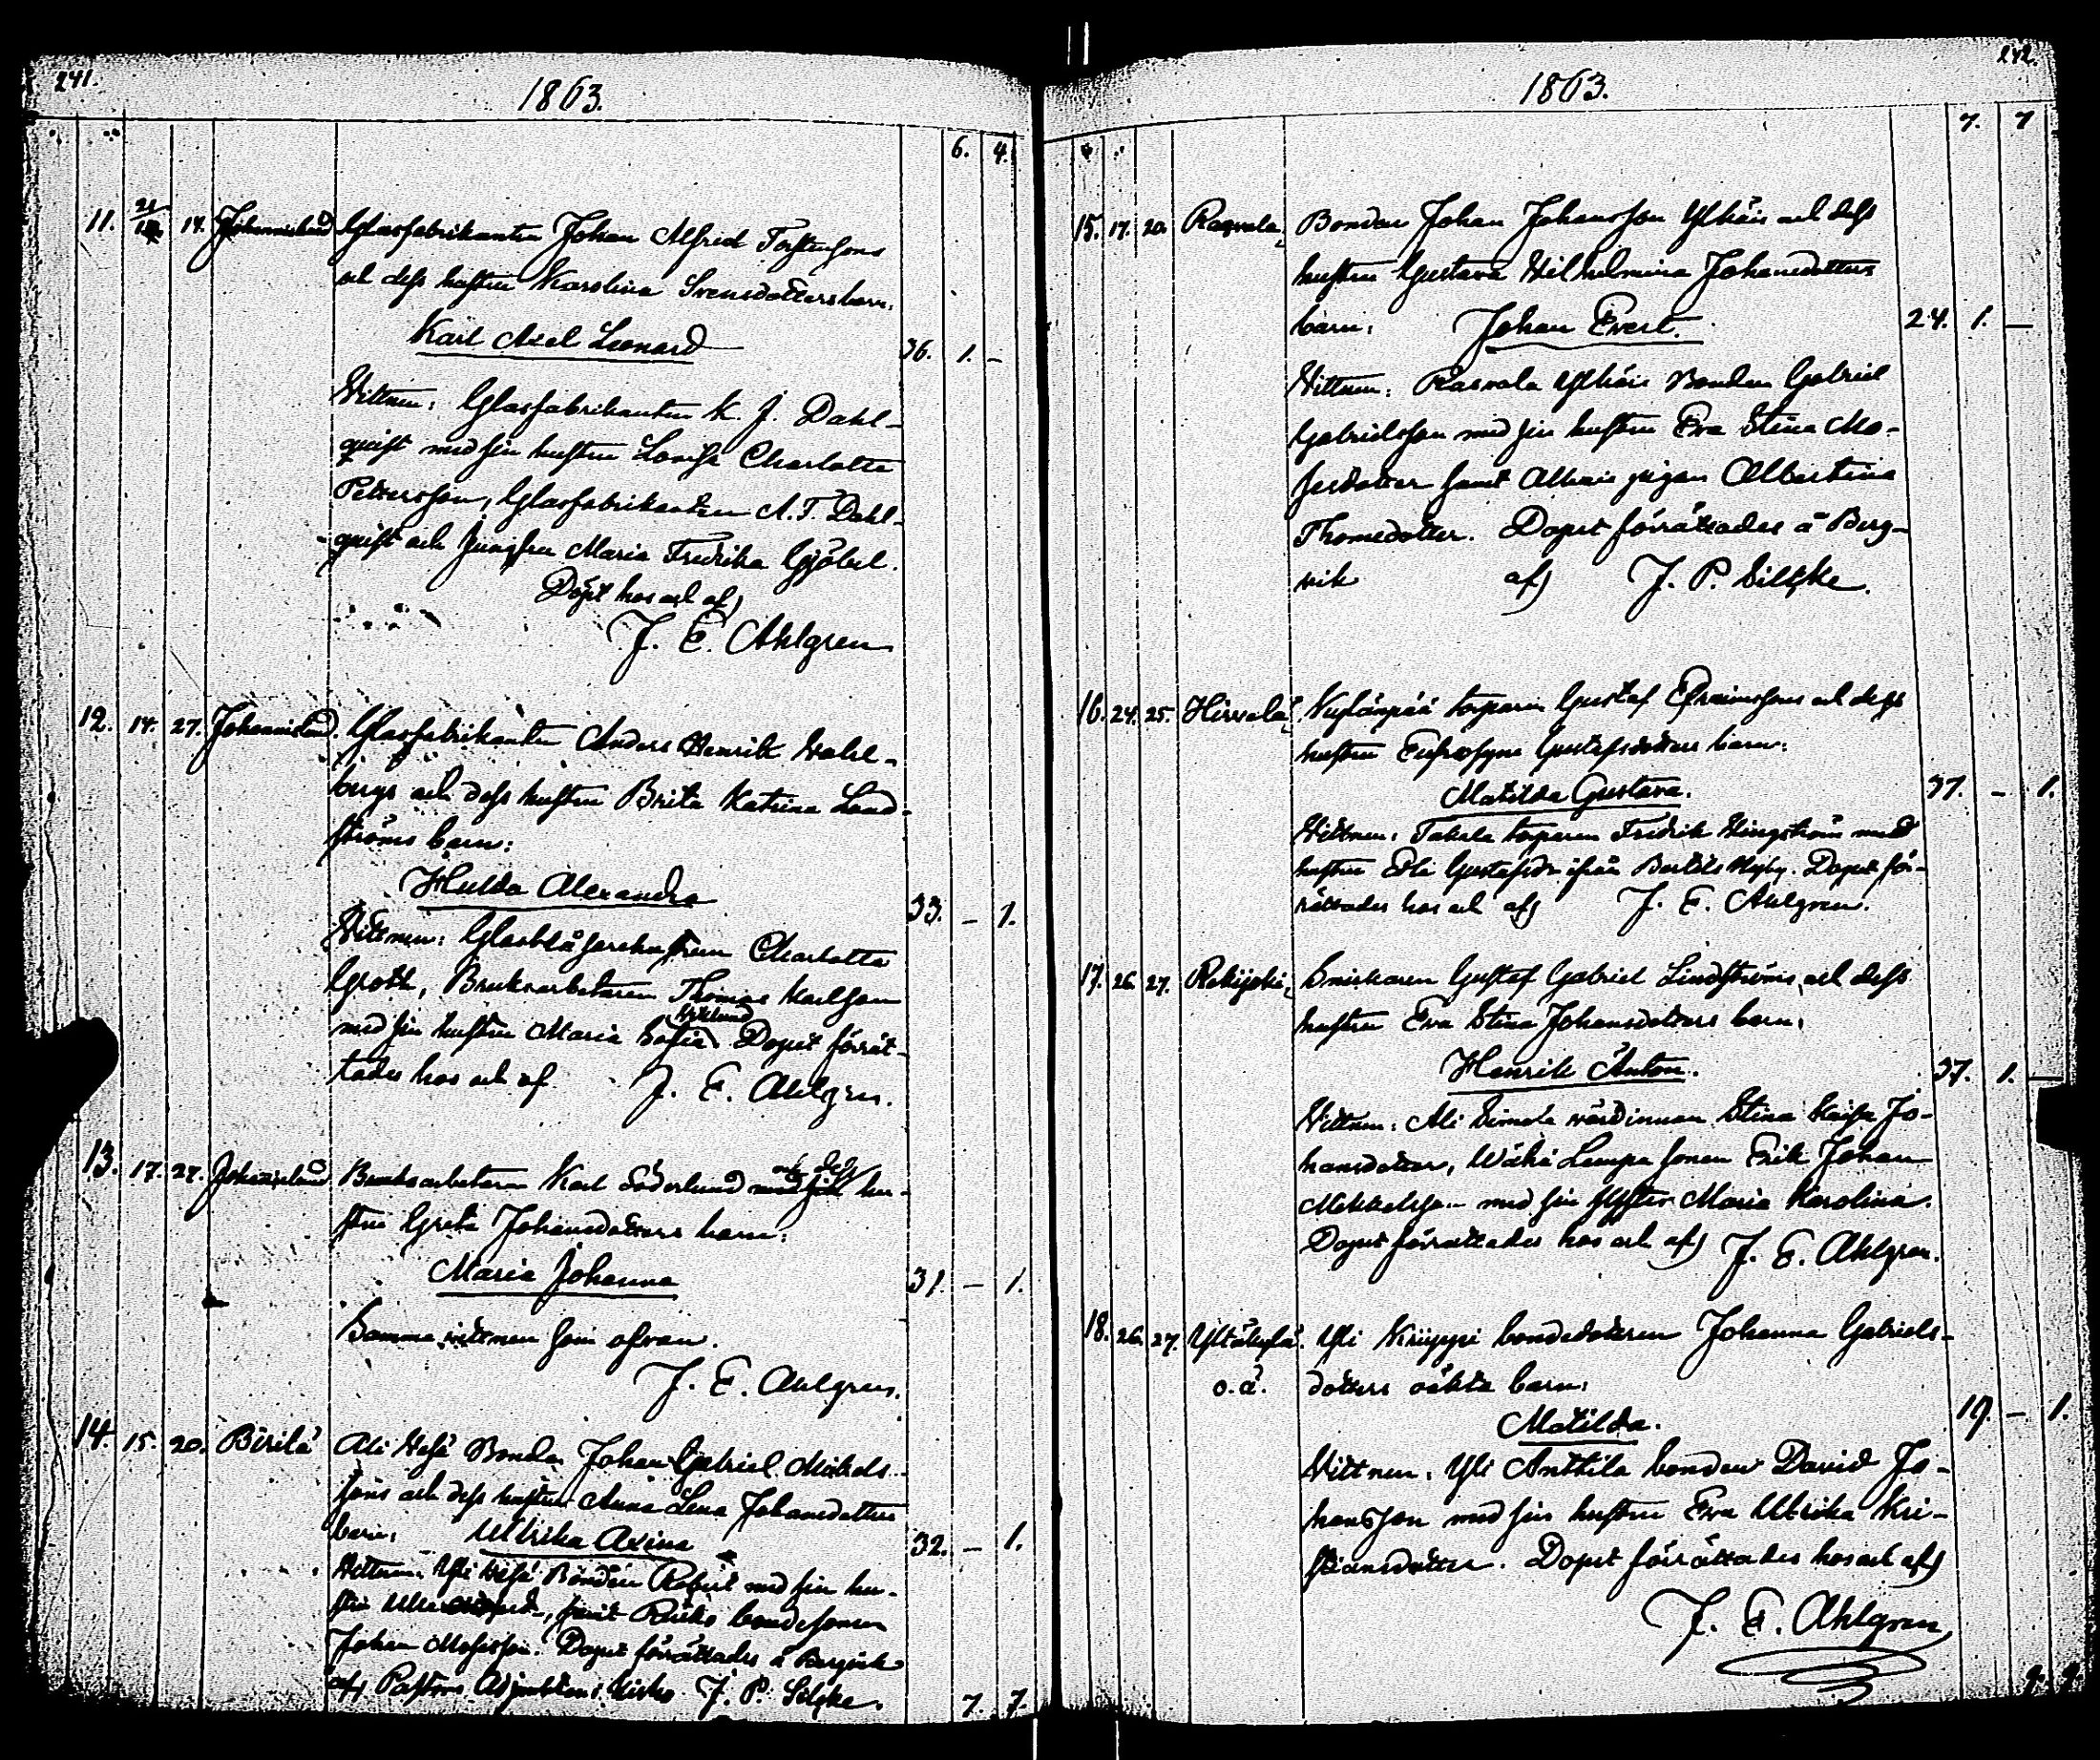 241.
1863.
6. 4.
11. 21/12 14. Johannislund Glasfabrikanten Johan Alfred Torstensons
och dess hustru Karolina Svensdotters barn:
Karl Axel Leonard 36. 1. –
Vittnen: Glasfabrikanten K. J. Dahl-
quist med sin hustru Lovisa Charlotta
Pettersson, Glasfabrikanten A. F. Dahl-
quist och Jungfru Maria Fredrika Gjöbel.
Döpt hos och af
J. E. Ahlgren
12. 14. 27. Johannislund. Glasfabrikanten Anders Henrik Wahl-
bergs och dess hustru Brita Katrina Land-
ströms barn:
Hulda Alexandra 33. – 1.
Vittnen: Glasblåsarehustrun Charlotta
Groth, Bruksarbetaren Thomas Karlson
med sin hustru Maria Sofia Dopet förrät-
tades hos och af J. E. Ahlgren.
13. 17. 27. Johannislund Bruksarbetaren Karl Söderlund och dess hu-
stru Greta Johansdotters barn:
Maria Johanna 31. – 1.
Samma vittnen som ofvan.
J. E. Ahlgren.
14. 15. 20. Börilä Ali Bonden Johan Gabriel
sons och dess hustru Anna Lena Johansdotters
barn: Ulrika Axina 32. – 1.
Vittnen: Yli Bonden Robert med sin hu-
stru samt bondesonen
Johan Mosisson. Dopet förrättades å Bergvik
af Pastors Adjunkten i Kisko J. P. Siltzke. 7. 7.
242.
1863.
7. 7
15. 17. 20. Rasvala, Bonden Johan Johansson och dess
hustru Gustava Wilhelmina Johansdotters
barn: Johan Evert. 24. 1. –
Vittnen: Rasvala Bonden Gabriel
Gabrielsson med sin hustru Eva Stina Mo-
sesdotter samt pigan Albertina
Thomedotter. Dopet förrättades å Berg-
vik af J. P. Siltzke.
16. 24. 25. Hirvelä, torparen Gustaf Efraimsons och dess
hustru Eufrosyne Gustafsdotters barn:
Matilda Gustava. 37. – 1.
Vittnen: Takala torparen Fredrik med
hustru Edla Gustafsdr ifrån Bertils Myby. Dopet för-
rättades hos och af J. E. Ahlgren.
17. 26. 27. Rekijoki, Snickaren Gustaf Gabriel Lindströms och dess
hustru Eva Stina Johansdotters barn:
Henrik Anton. 37. 1. –
Vittnen: Ali Simola värdinnan Stina Kaisa Jo-
hansdotter, Wähä Lempa sonen Erik Johan
Mikkelsson med sin syster Maria Karolina.
Dopet förrättades hos och af J. E. Ahlgren.
18. 26. 27. Yltäkylä. Yli Knuuppi bondedotteren Johanna Gabriels-
o. ä. dotters oäkta barn:
Matilda. 19. – 1.
Vittnen: Yli Anttila bonden David Jo-
hansson med sin hustru Eva Ulrika Kri-
stiansdotter. Dopet förrättades hos och af
J. E. Ahlgren,
9. 9.